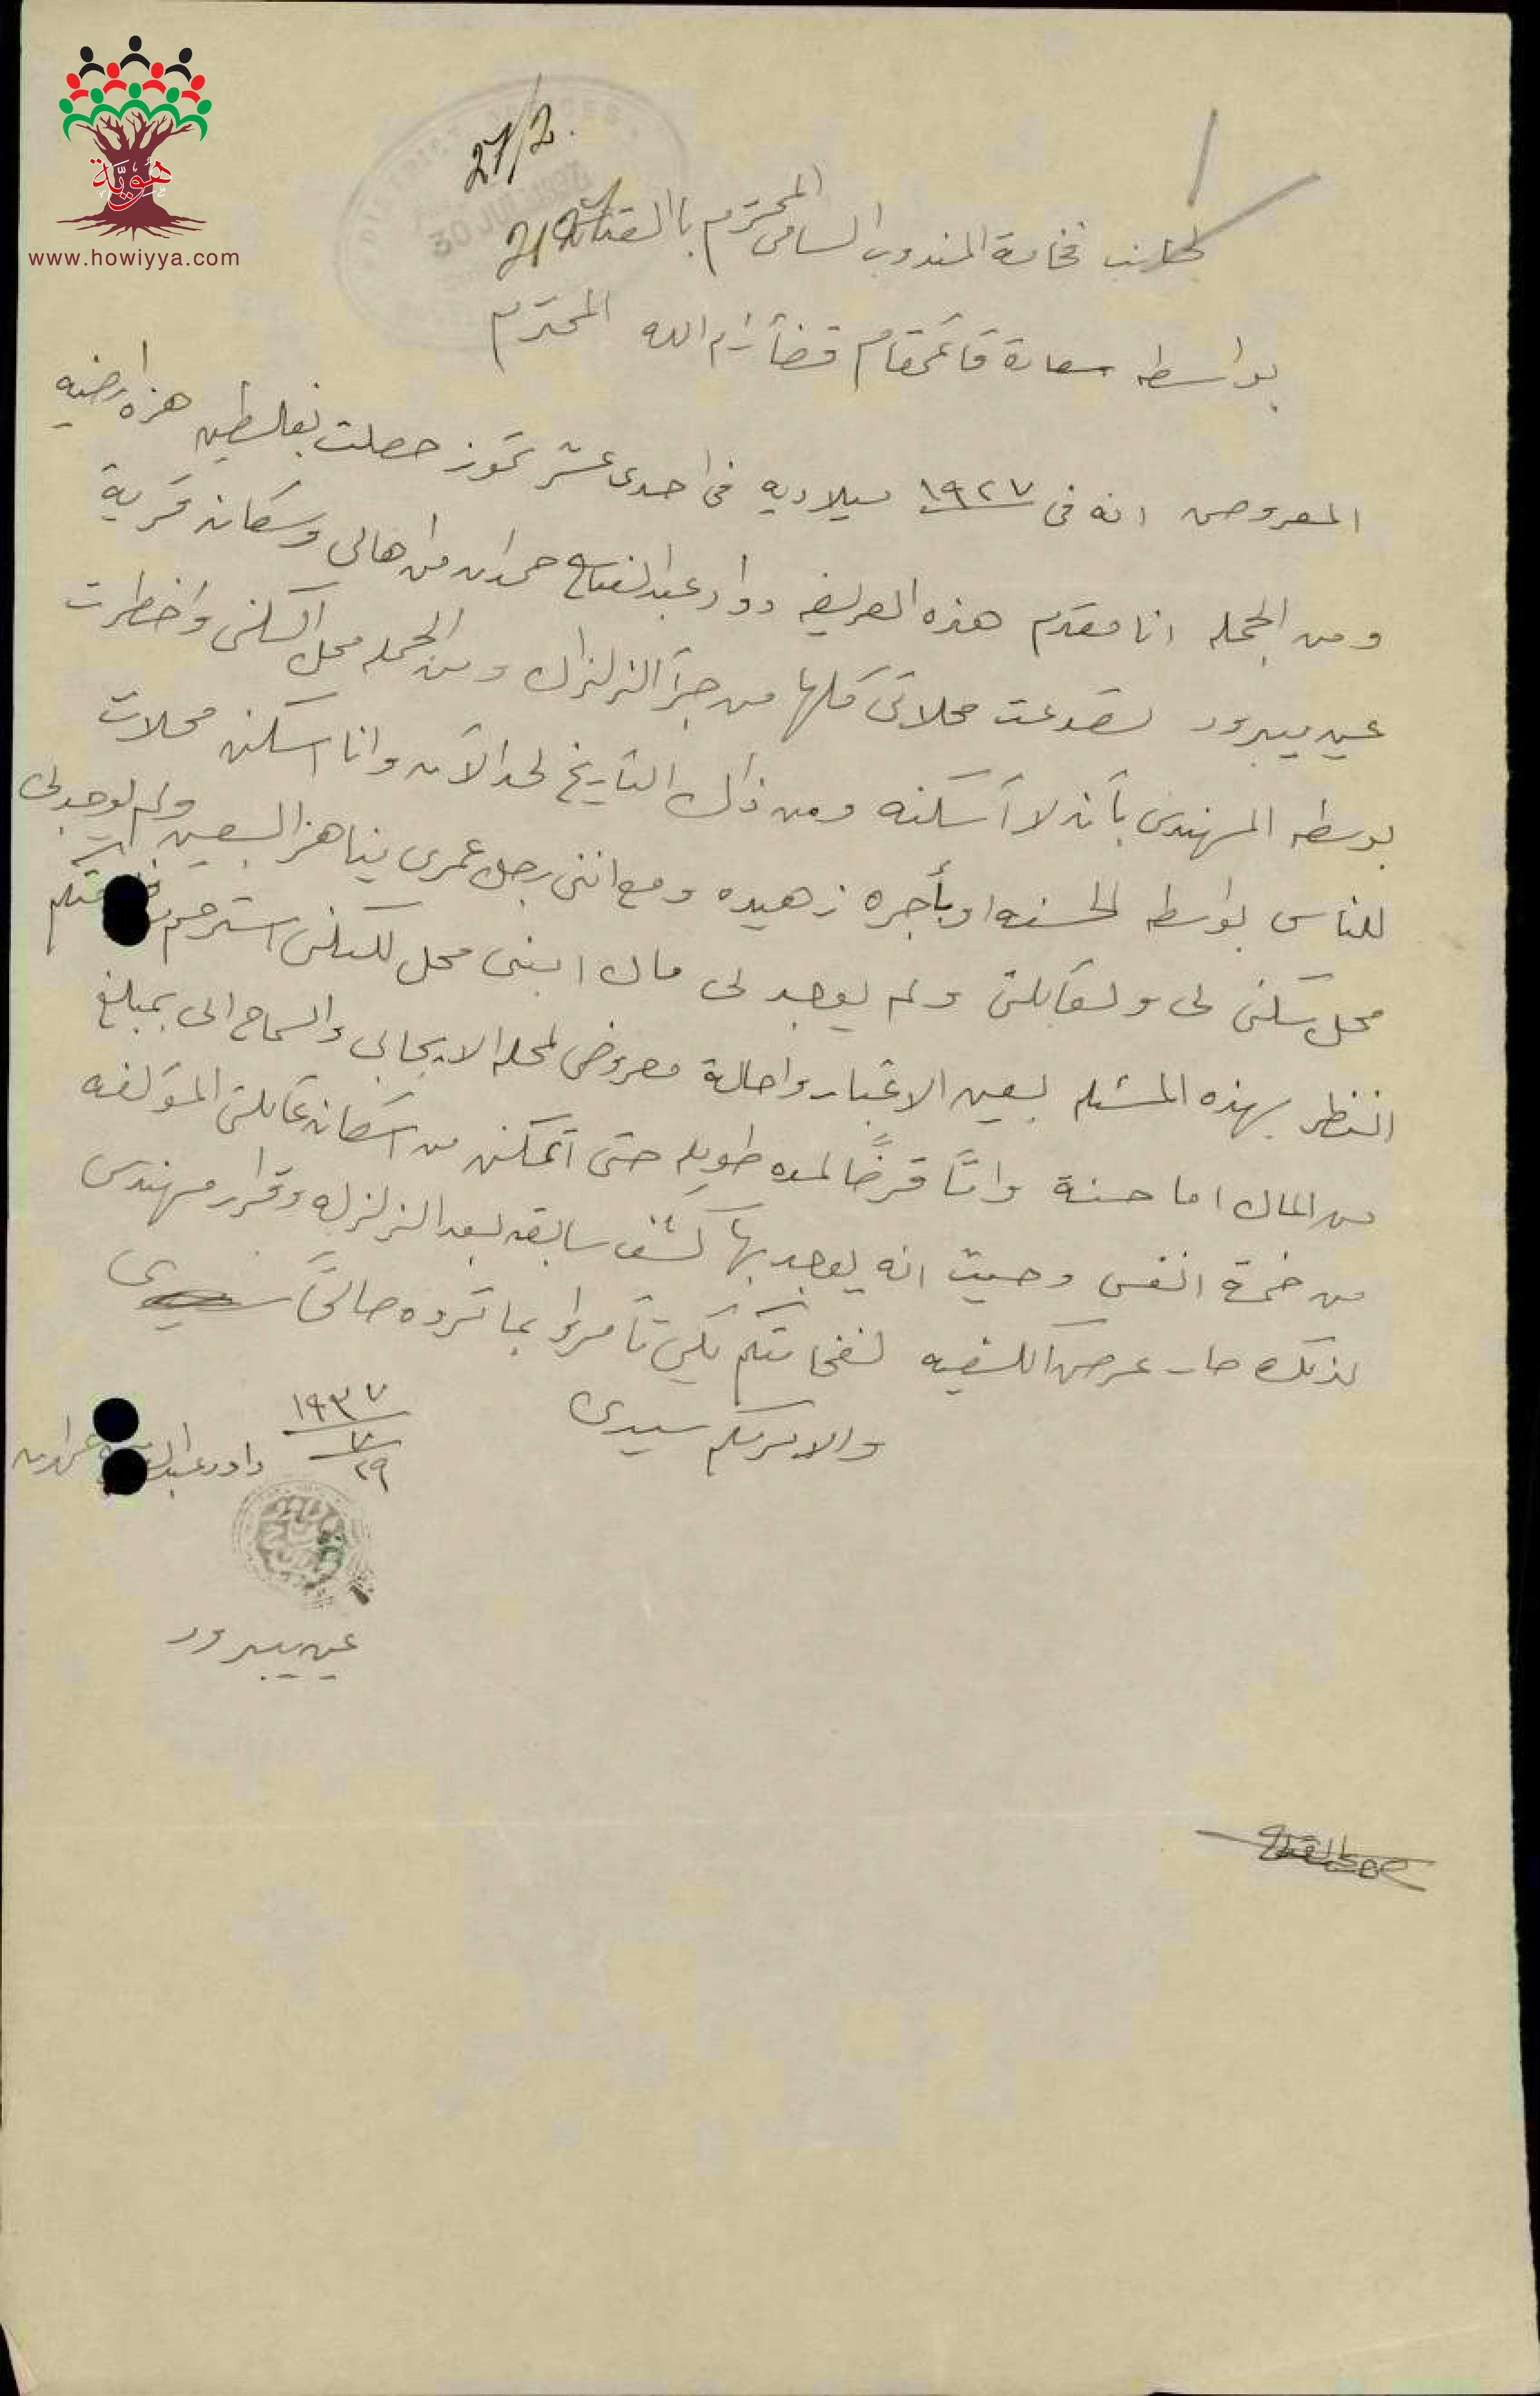 هوية
www.howiyya.com
27/2.
30 JUL 1937
لجانب فخامة المندوب السامي المحترم بالقدس
بواسطه سعادة قائمقام قضأ رام الله المحترم
المعروض انه في ١٩٢٧ ميلاديه في احدى عشر تموز حصلت بفلسطين هزه ارضيه
ومن الجمله انا مقدم هذه العريضه داود عبد الفتاح حمدان من اهالي وسكان قرية
عين يبرود تصدعت محلاتي كلها من جرآ الزلزال ومن الجمله محل السكنى واخطرت
بوسطه المهندس بأنه لا أسكنه ومن ذالك التاريخ لحد الآن وانا اسكن محلات
للناس بواسطه الحسنه او بأجره زهيده ومع انني رجل عمري يناهز السبعين ولم يوجد لي
محل سكنى لي ولعائلتي ولم يوجد لي مال ابني محل للسكن استرحم فخامتكم
النظر بهذه المسئله بعين الاعتبار واحالة معروضي لمحله الايجابي والسماح الى بمبلغ
من المال اما حسنة وامّا قرضًا لمده طويله حتى أتمكن من اسكان عائلتي المؤلفه
من خمسة انفس وحيث انه يوجد بها كشف سابقه بعد الزلزله وقرار مهندس
لذلك صار عرض الكيفيه لفخامتكم لكي تأمروا بما تروه صالحًا سيدي
والامر لكم سيدي
١٩٣٧
٧
٢٩
داود عبد الفتاح حمدان
عين يبرود